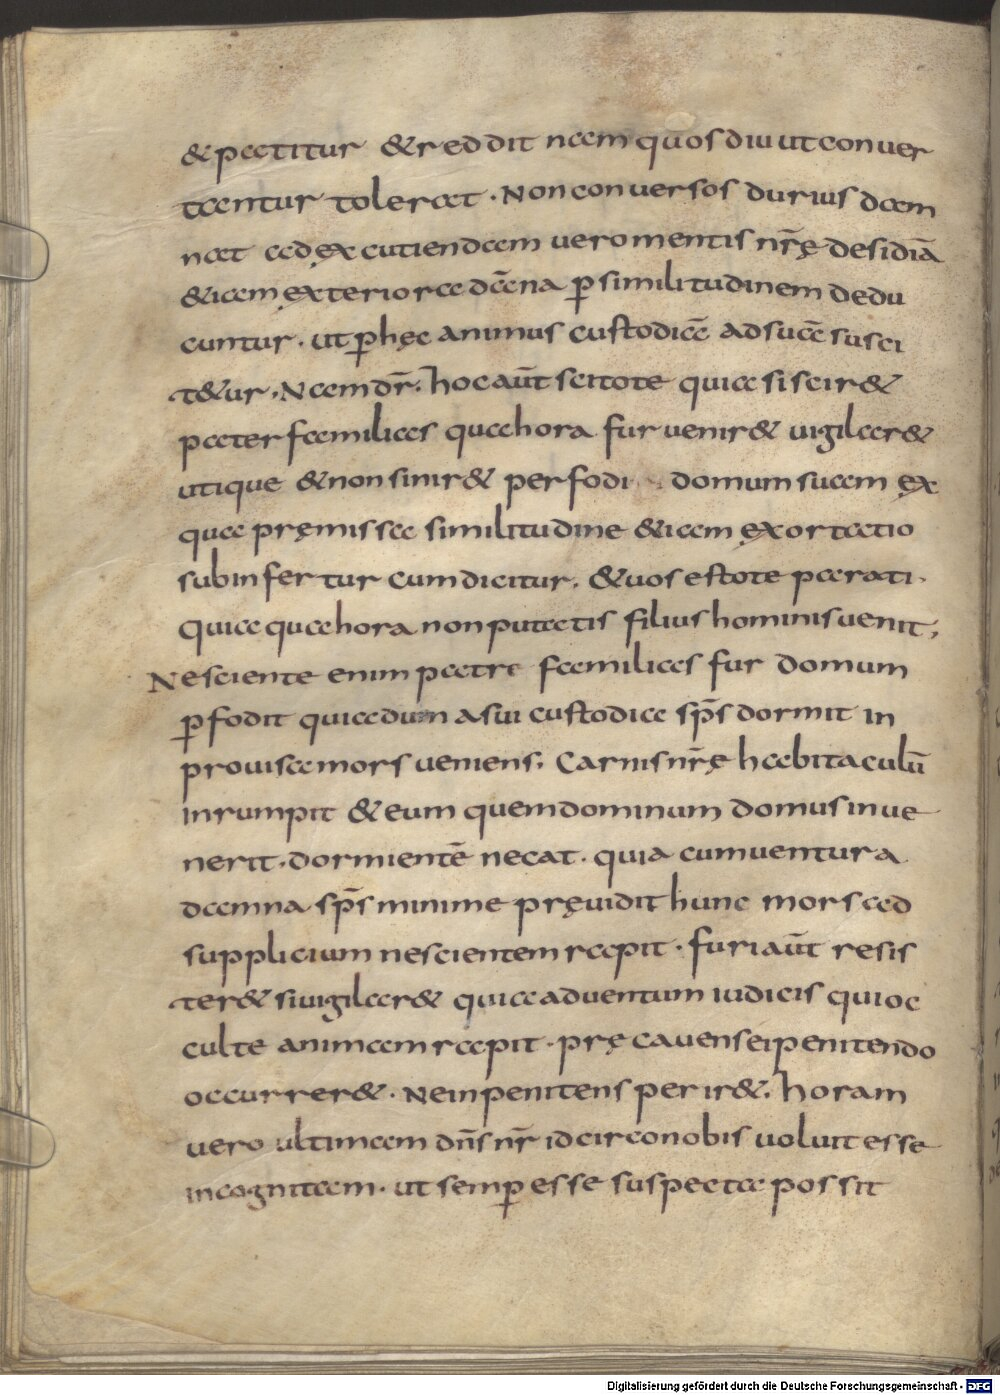 & patitur & reddit nam quos diu ut conuer
tantur tolerat · Non conuersos durius dam
nat ad excutiendam uero mentis nr̄ę desidiā
& iam exteriora dāna p̱ similitudinem dedu
cuntur · ut p̱ hęc animus custodiā ad suā susci
t&ur · Nam dr̄ · hoc aūt scitote quia si scir&
pater familias qua hora fur uenir& uigilar&
utique & non sinir& perfodi domum suam ex
qua pręmissa similitudine & iam exortatio
subinfertur cum dicitur · & uos estote parati ·
Quia qua hora non putatis filius hominis uenit ;
Nesciente enim patre familias fur domum
p̱fodit quia dum a sui custodia sp̄s dormit in
prouisa mors ueniens · Carnis nr̄ę habitaculū
inrumpit & eum quem dominum domus inue
nerit · dormientē necat · quia cum uentura
damna sp̄s minime pręuidit hunc mors ad
supplicium nescientem rapit · furi aūt resis
ter& si uigilar& quia aduentum iudicis qui oc
culte animam rapit · pręcauens ei penitendo
occurrer& · Ne inpenitens perir& · horam
uero ultimam dn̄s nr̄ idcirco nobis uoluit esse
incognitam · ut semp̱ esse suspecta possit
Digitalisierung gefördert durch die Deutsche Forschungsgemeinschaft - DFG